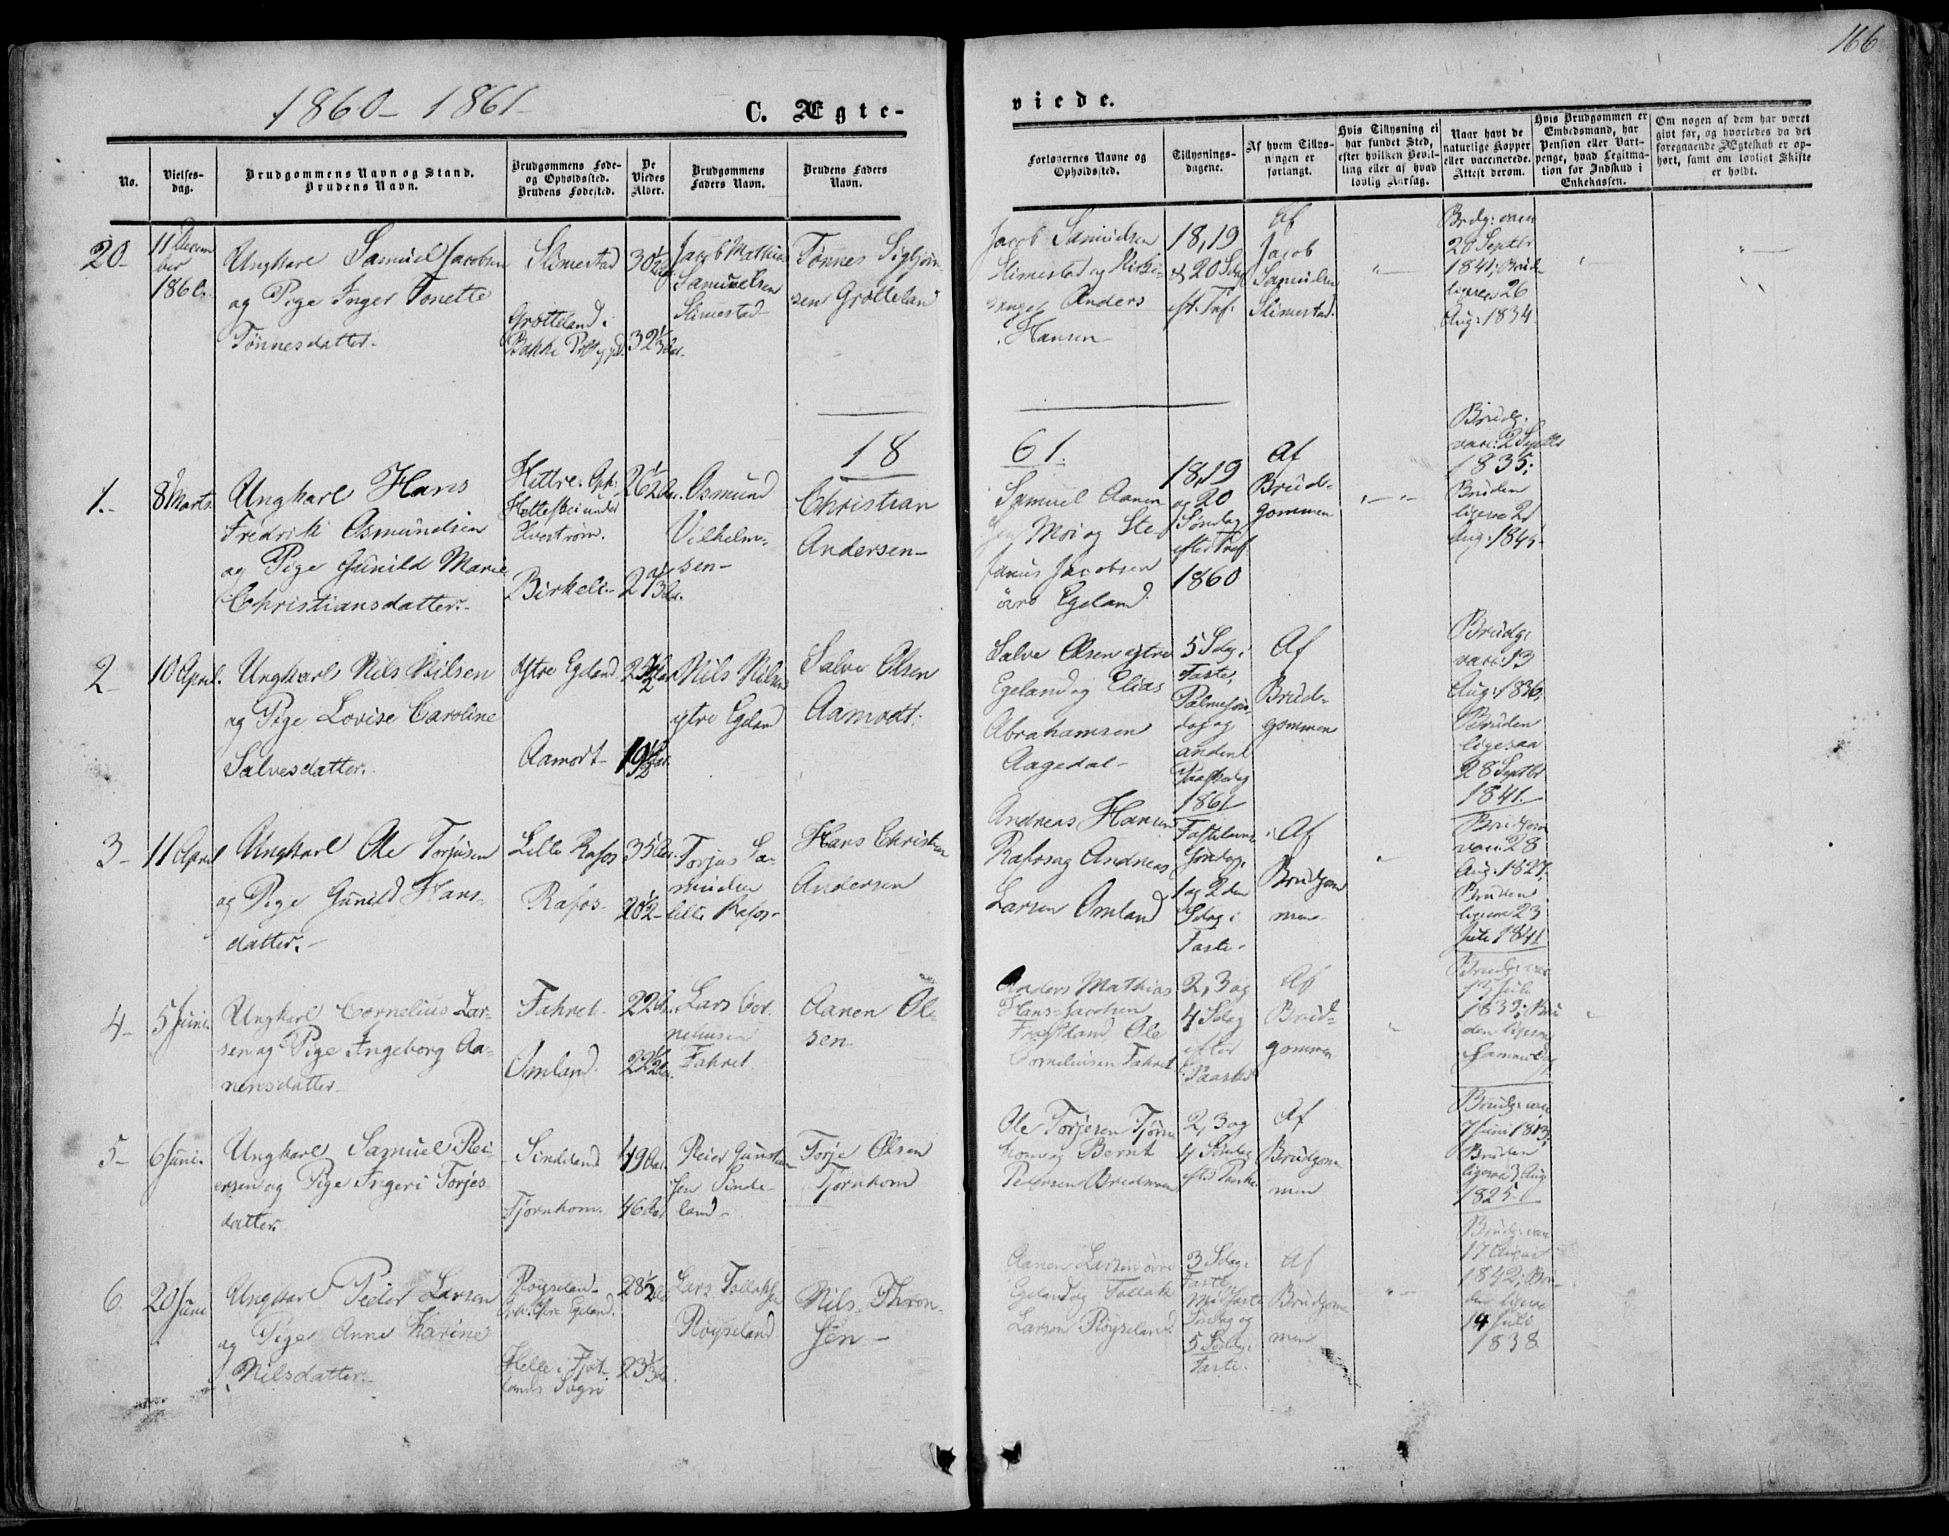 166
1860 - 1861
C. Ægte-
viede.
No.
Vielses-
dag.
Brudgommens Navn og Stand.
Brudens Navn.
Brudgommens Føde-
og Opholdssted.
Brudens Fødested.
De
Viedes
Alder.
Brudgommens
Faders Navn.
Brudens Faders
Navn.
Forlovernes Navne og
Opholdssted.
Tillysnings-
dagene.
Af hvem Tillys-
ningen er
forlangt.
Hvis Tillysning ei
har fundet Sted,
efter hvilken Bevil-
ling eller af hvad
lovlig Aarsag.
Naar havt de
naturlige Kopper
eller vaccinerede.
Attest derom.
Hvis Brudgommen er
Embedsmand, har
Pension eller Vart-
penge, hvad Legitima-
tion for Indskud i
Enkekassen.
Om nogen af dem har været
gift før, og hvorledes da det
foregaaende Ægteskab er op-
hørt, samt om lovligt Skifte
er holdt.
20-
11 Decem
ber
1860.
Ungkarl Samuel Jacobsen
og Pige Inger Tonette
Tønnesdatter.
Slimestad
Grøtteland i
Bakke
30 1/2
32 1/3
Jacob Mathias
Samuelsen
Slimestad
Tønnes Sigbjørn-
sen Grøtteland
Jacob Samuelsen
Slimestad og
Anders
Hansen
18, 19
& 20 Sdg
eft. Tref.
Af
Jacob
Samuelsen
Slimestad.
Brdg: vacc
28 Septbr
1841; Brud-
26
Aug: 1834
18
61.
1.-
8 Marts.
Ungkarl Hans
Fredrik Osmundsen
og Pige Gunild Marie
Christiansdatter.-
Hittrø. Oph:
under
Birkeli.-
26 1/2
Osmund
Vilhelm-
sen-
Christian
Andersen-
Samuel Aanen
sen Moi og Ste-
fanus Jacobsen
øvre Egeland
18, 19
og 20
Søndag
efter Tref.
1860
Af
Brud-
gommen
Brudg.
vacc: 2 Septbr
1835;
Bruden
ligesaa 21
Aug: 1845-
2-
10 April.
Ungkarl Nils Nilsen
og Pige Lovise Caroline
Salvesdatter.
Ytre Egeland
Aamodt-
25 1/2
19 1/2
Nils Nilsen
ytre Egeland
Salve Olsen
Aamodt.
Salve Olsen ytre
Egeland og Elias
Abrahamsen
Aagedal-
5 Sdg i
Faste,
Palmesøn-
dag og
anden
Paaskedag
1861
Af
Brud-
gommen
Brudg:
vacc: 13
Aug: 1836;
Bruden
ligesaa
28 Septbr
1841.-
3-
11 April
Ungkarl Ole Torjusen
og Pige Gunild Hans-
datter.-
Lille Rafos
Rafos-
35
20 1/2-
Torjus Sa-
muelsen
lille Rafos-
Hans Christian
Andersen
Andreas Hansen
Rafos og Andreas
Larsen Omland
Fastelavns
Søndag,
1 og 2den
Sdag i
Faste-
Af
Brudgom
men-
Brudgom
vacc: 28
Aug: 1827;
Bruden
ligesaa 23
Juli 1841
4-
5 Juni.
Ungkarl Cornelius Lar-
sen og Pige Ingeborg Aa-
nensdatter-
Fahret-
Omland.
22
22 1/2
Lars Cor-
neliusen
Fahret
Aanen Ol-
sen
Anders Mathias
Hans Jacobsen
Ole
Corneliusen Fahret
2, 3 og
4 Sdag
efter
Paaske
Af
Brud-
gommen
Juli
den ligesaa
samme Dag
5-
6 Juni.
Ungkarl Samuel Rei-
ersen og Pige Ingeri Torjes-
datter.
Sindeland
Tjørnhom.
49
46
Reier Gunstein
sen Sinde-
land-
Torje Olsen
Tjørnhom
Ole Torjesen Tjørn
hom og Bernt
Petersen
2, 3 og
4 Søndag
efter Paaske
Af
Brudgom
men
Brudg: vacc
7 Juni 1813;
Bruden
ligesaa 3 Aug
1825-
6.
20 Juni
Ungkarl Peder Larsen
og Pige Anne Karine
Nilsdatter.-
Røyseland-
Oph: Egeland.
Helle i Fjot-
lands Sogn
28 1/2
23 1/3
Lars Tollaksen
Røyseland
Nils Thron-
sen-
Aanen Larsen øvre
Egeland og Tollak
Larsen Røyseland.
3 Sdag i
Faste,
Midfaste
Søndag og
5 Sdag i
Faste.
Af
Brudgom
men
Brudg: vacc
17 August
1842; Bru-
den ligesaa
14 Juli
1838